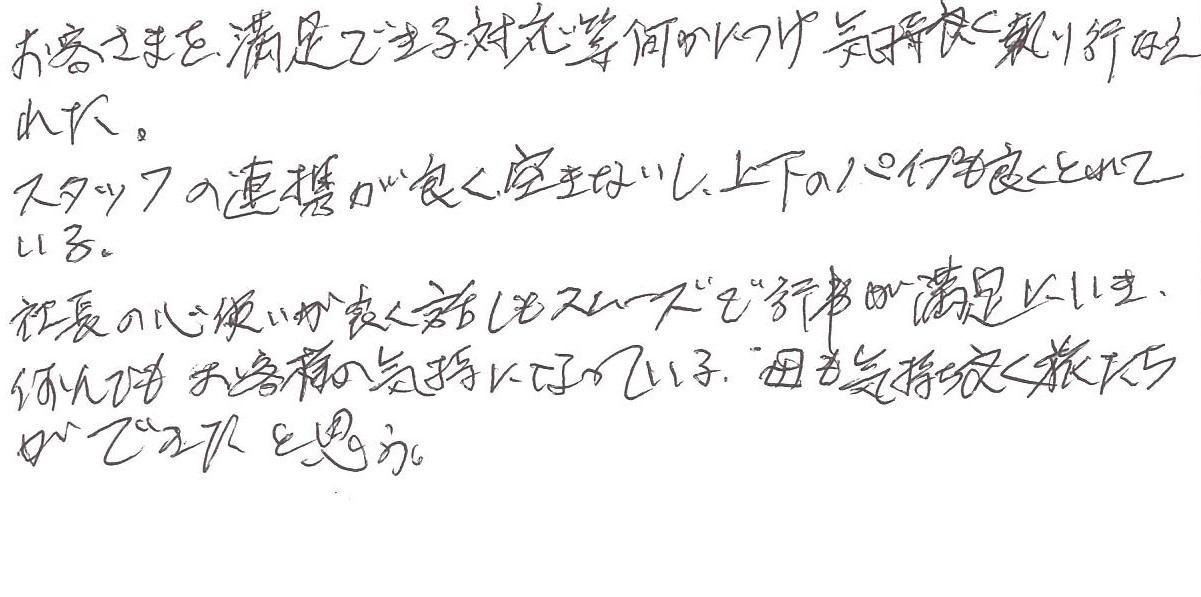 お客さまを満足できる対応等何かにつけ気持良く執り行なえ
れた。
スタッフの連携が良く、空きないし、上下のパイプも良くとれて
いる。
社長の心使いが良く話しもスムーズで行事が満足にいき、
何んでもお客様の気持になっている。母も気持ち良く旅たち
ができたと思う。